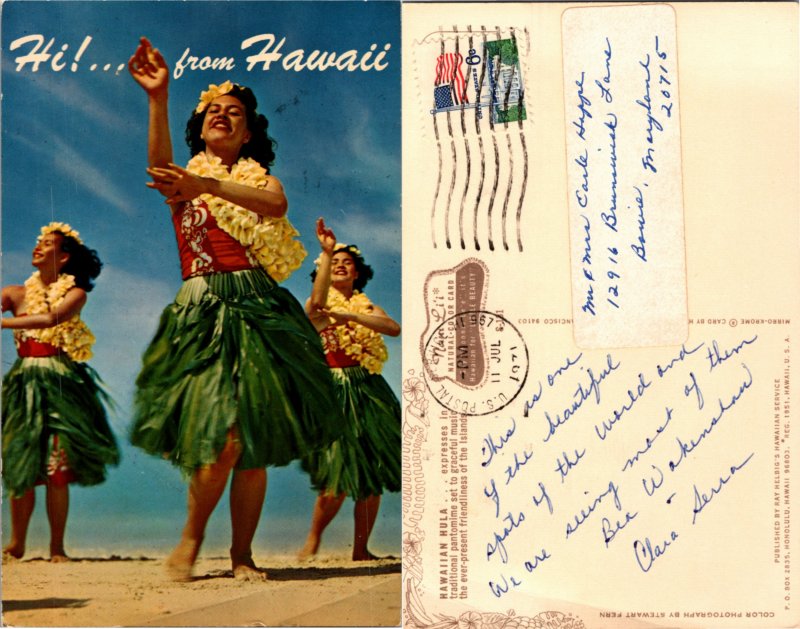 Hi!... from Hawaii
6c
Mr & Mrs Carle Heppe
12916 Brunswick Lane
Bowie, Maryland
20715
U.S. POSTAL
PM
11 JUL
1971
NATURAL COLOR CARD
This is one
of the beautiful
spots of the world and
We are seeing most of them
Bea Wakenshaw
Clara Serra
HAWAIIAN HULA ... expresses in
traditional pantomime set to graceful music
the ever-present friendliness of the Islands
MIRRO-KROME ® CARD BY H
NCISCO 94103
PUBLISHED BY RAY HELBIG'S HAWAIIAN SERVICE
P. O. BOX 2835, HONOLULU, HAWAII 96803. REG. 1951, HAWAII, U.S.A.
COLOR PHOTOGRAPH BY STEWART FERN